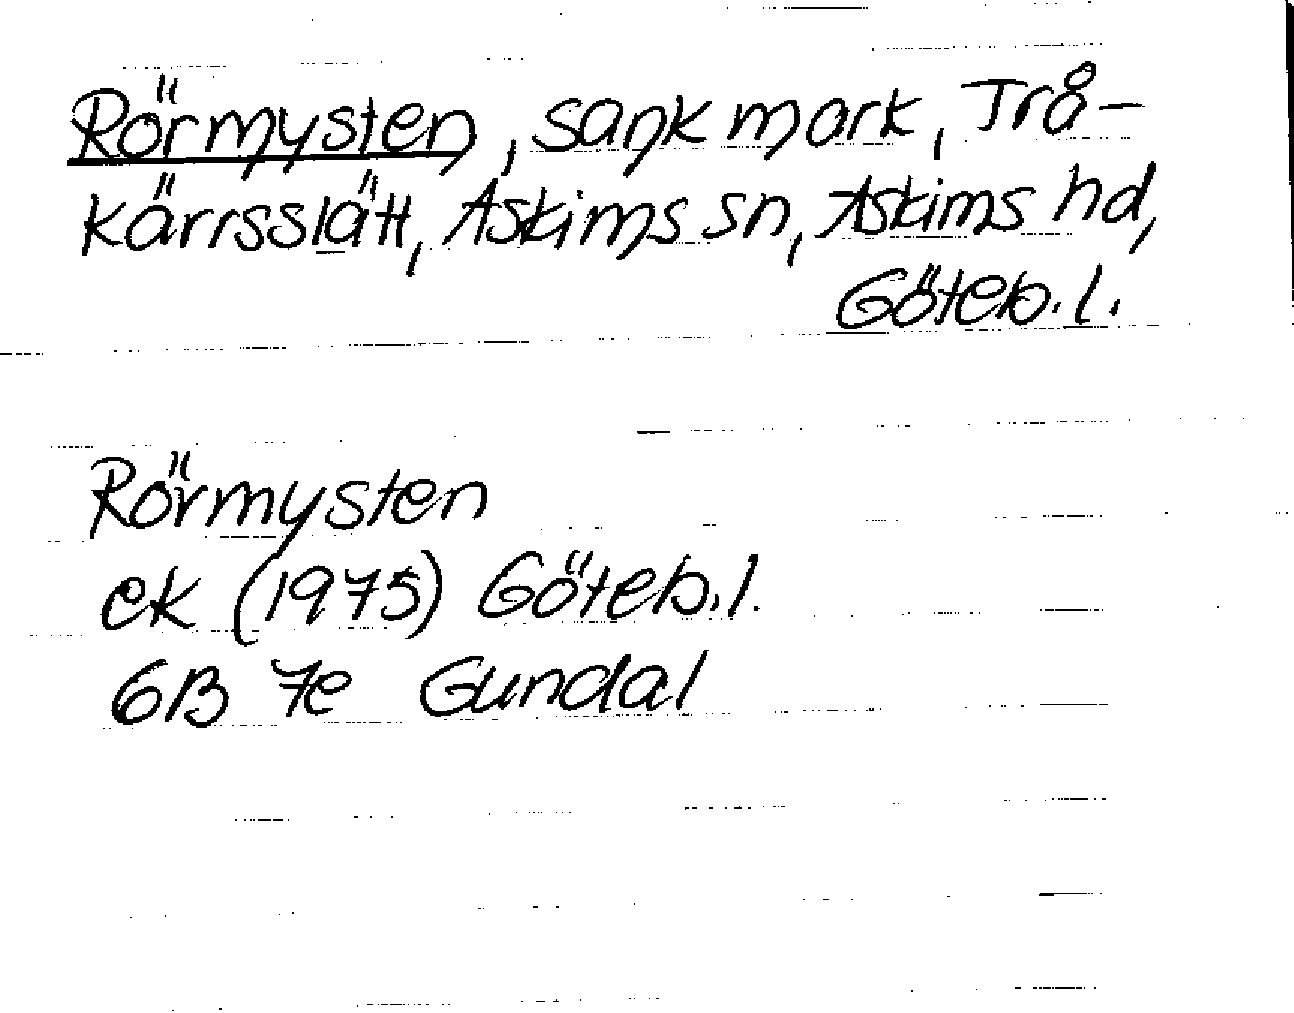 Rörmysten, sank mark, Trå-
kärrsslätt, Askims sn, Askims hd,
Göteb. l.
Rörmysten
ek (1975) Göteb. l.
6B 7e Gundal